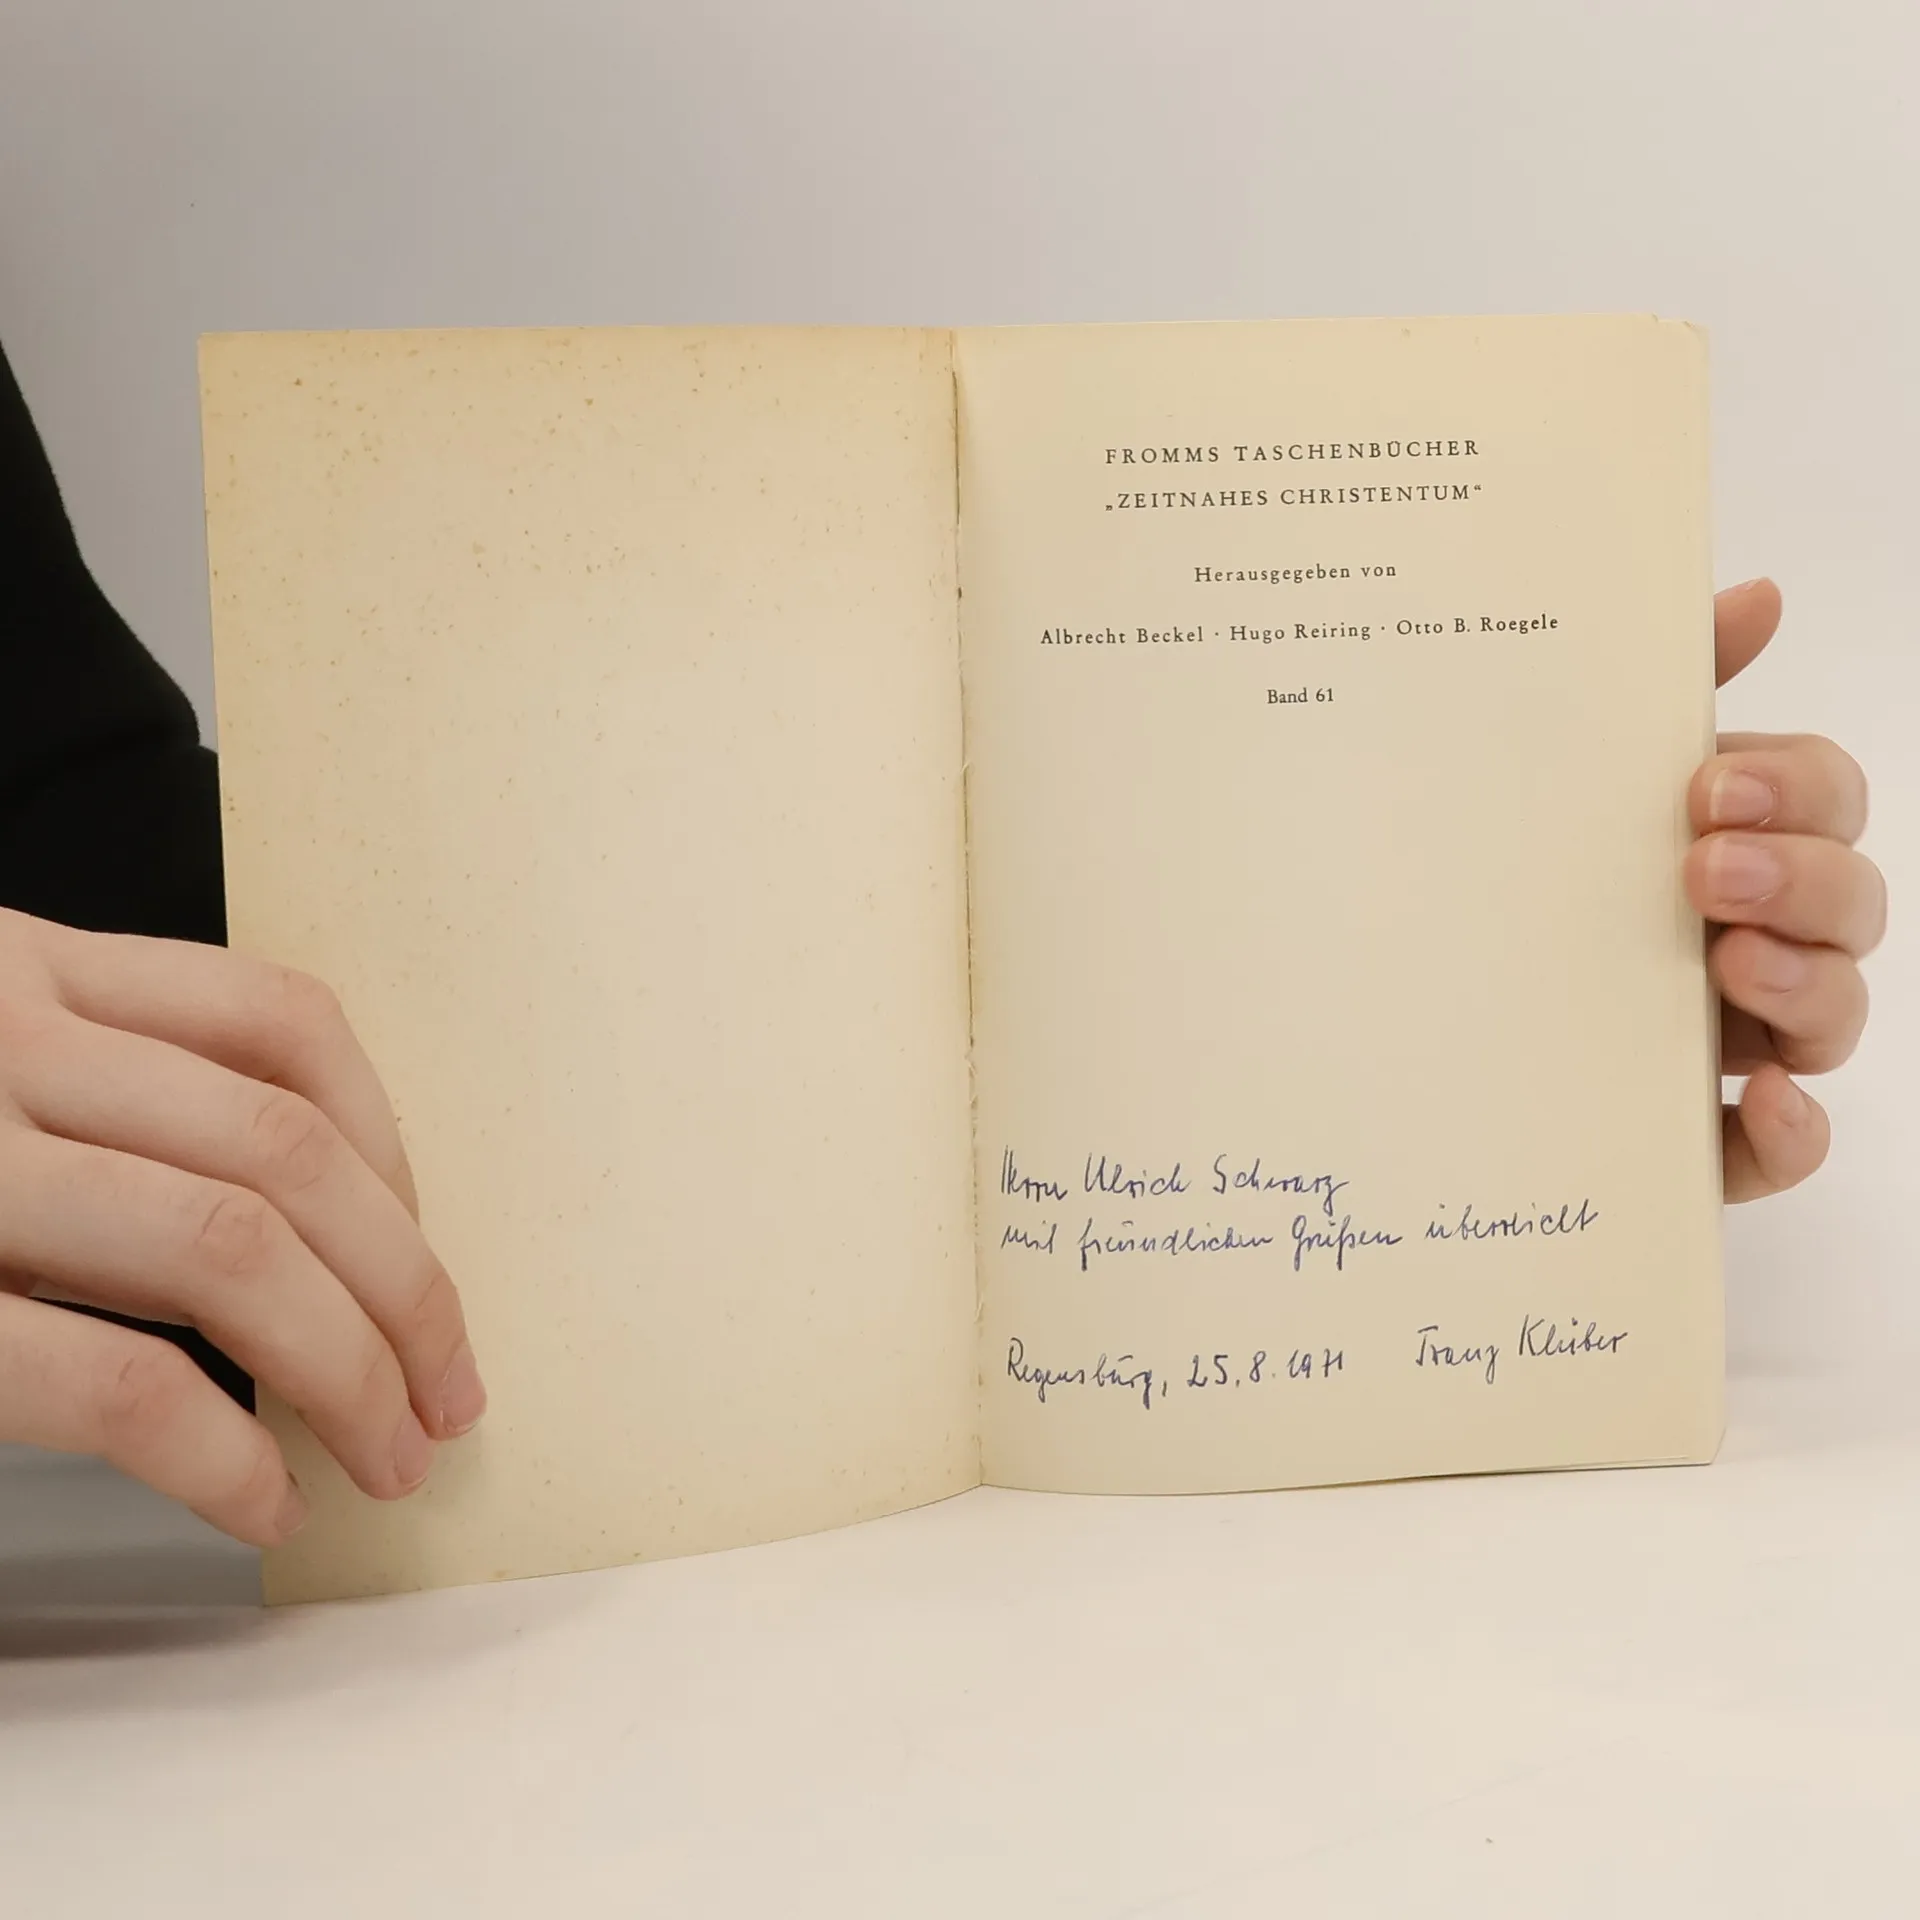 FROMMS TASCHENBÜCHER
„ZEITNAHES CHRISTENTUM“
Herausgegeben von
Albrecht Beckel · Hugo Reiring · Otto B. Roegele
Band 61
Herrn Ulrich Schwarz
mit freundlichen Grüßen überreicht
Regensburg, 25.8.1971 Franz Klüber